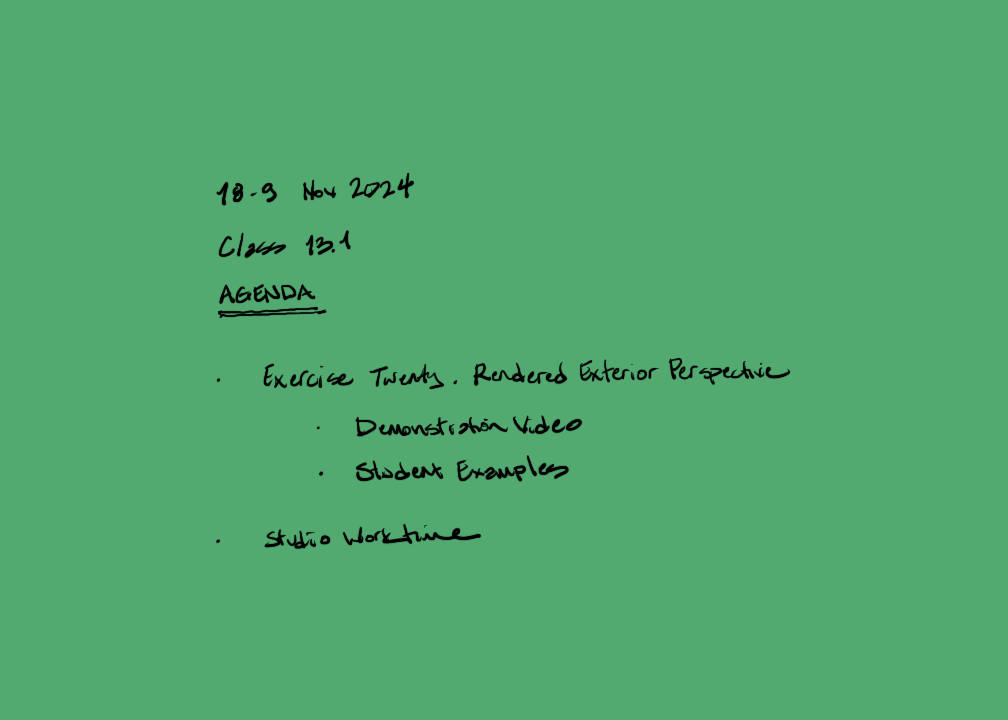 18-9 Nov 2024
Class 13.1
AGENDA
· Exercise Twenty. Rendered Exterior Perspective
· Demonstration Video
· Student Examples
· Studio Worktime